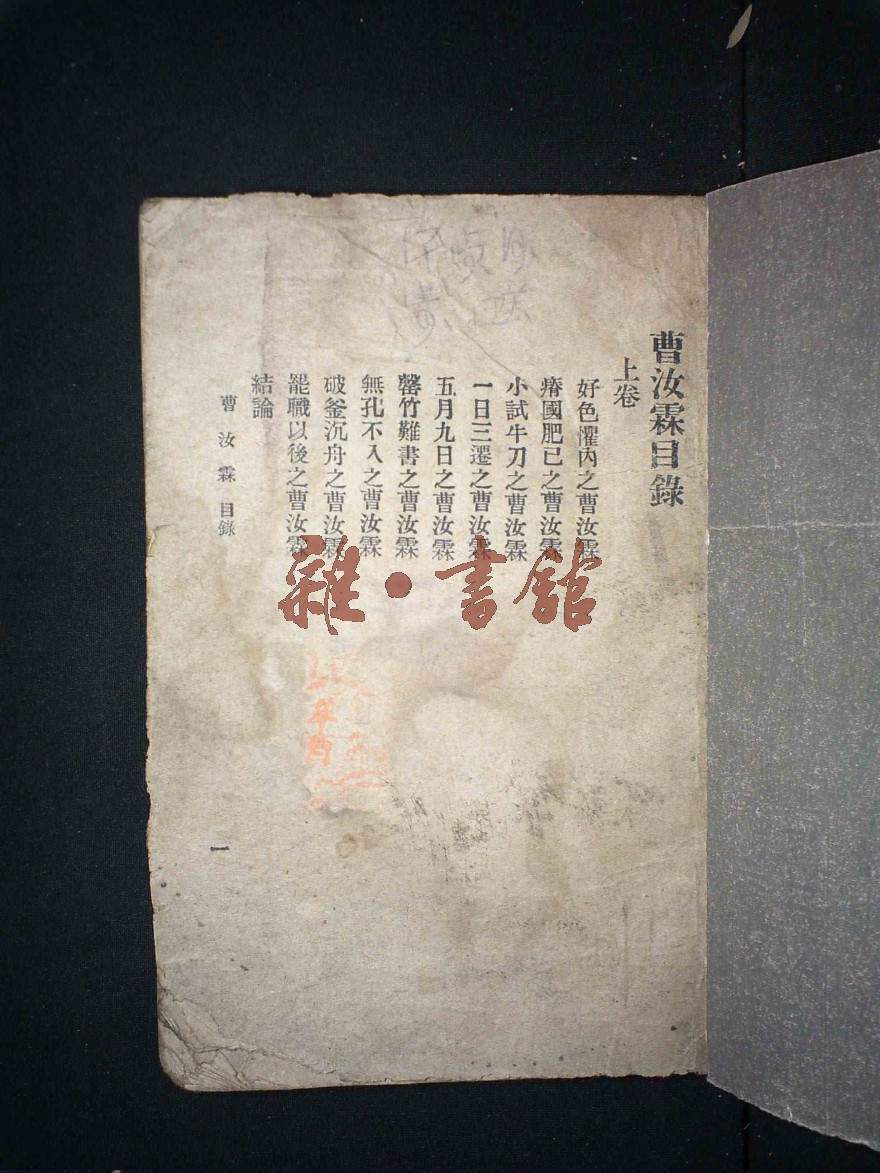 曹汝霖目錄
上卷
好色懼內之曹汝霖
瘠國肥己之曹汝霖
小試牛刀之曹汝霖
一日三遷之曹汝霖
五月九日之曹汝霖
罄竹難書之曹汝霖
無孔不入之曹汝霖
破釜沉舟之曹汝霖
罷職以後之曹汝霖
結論
曹汝霖 目錄
一
雜·書館